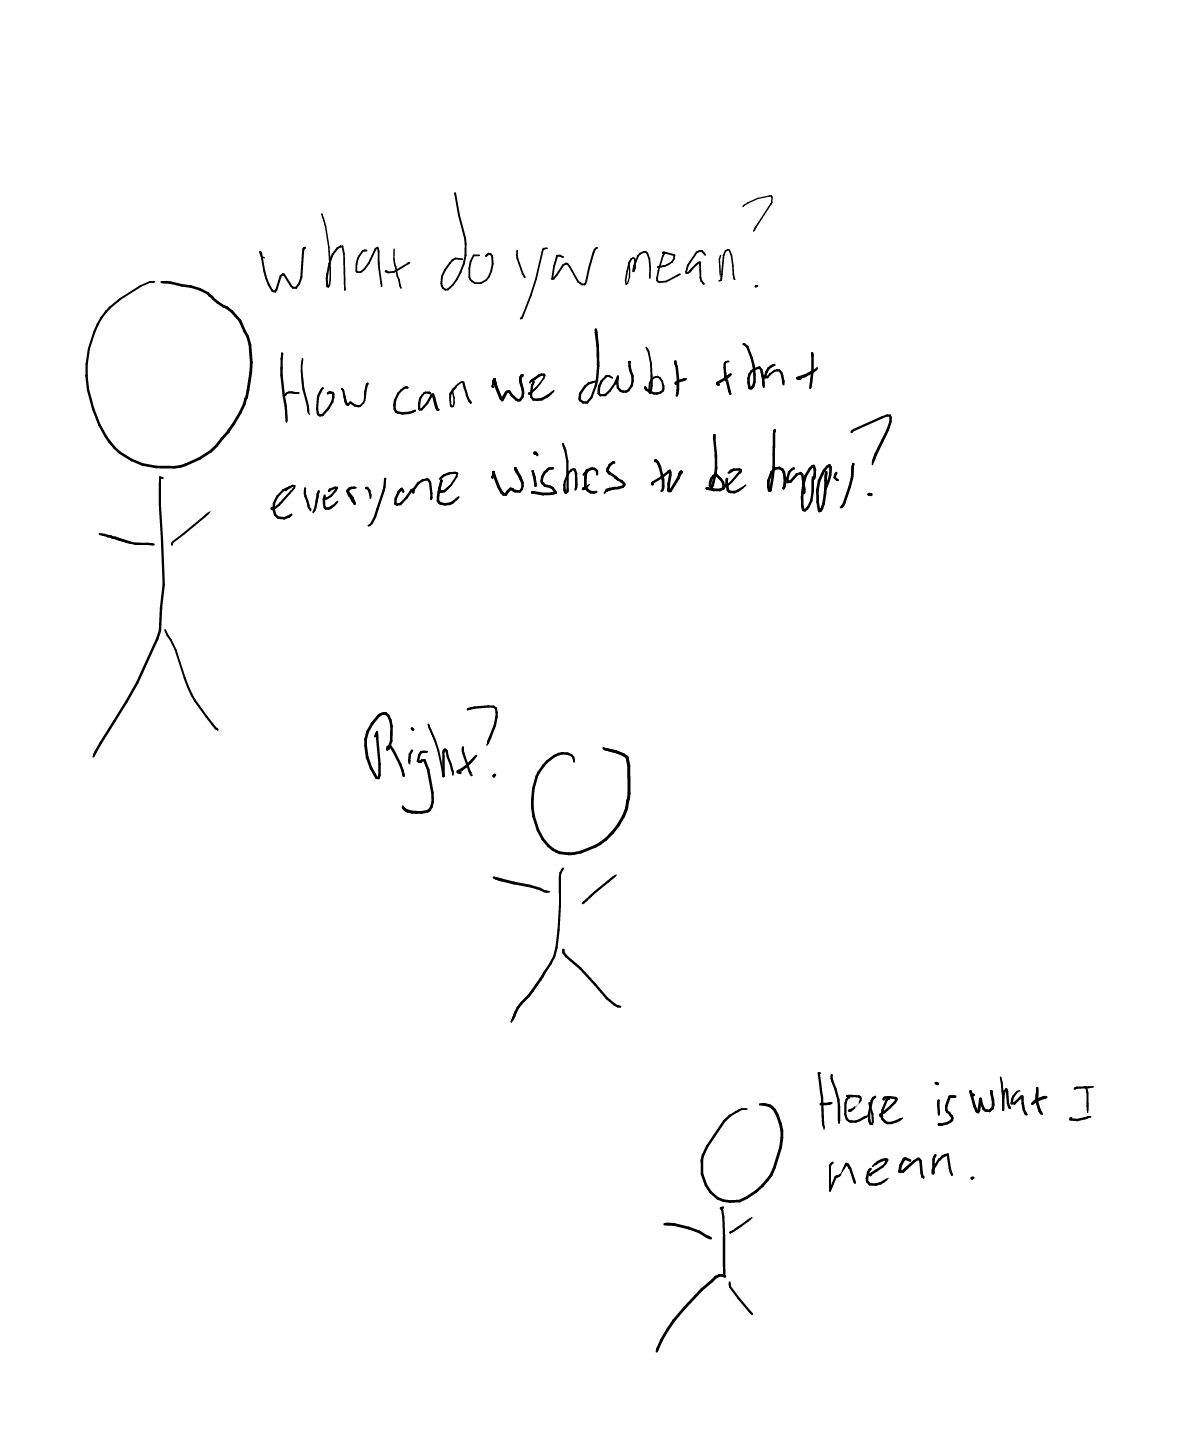 What do you mean?
How can we doubt that
everyone wishes to be happy?
Right?
Here is what I
mean.